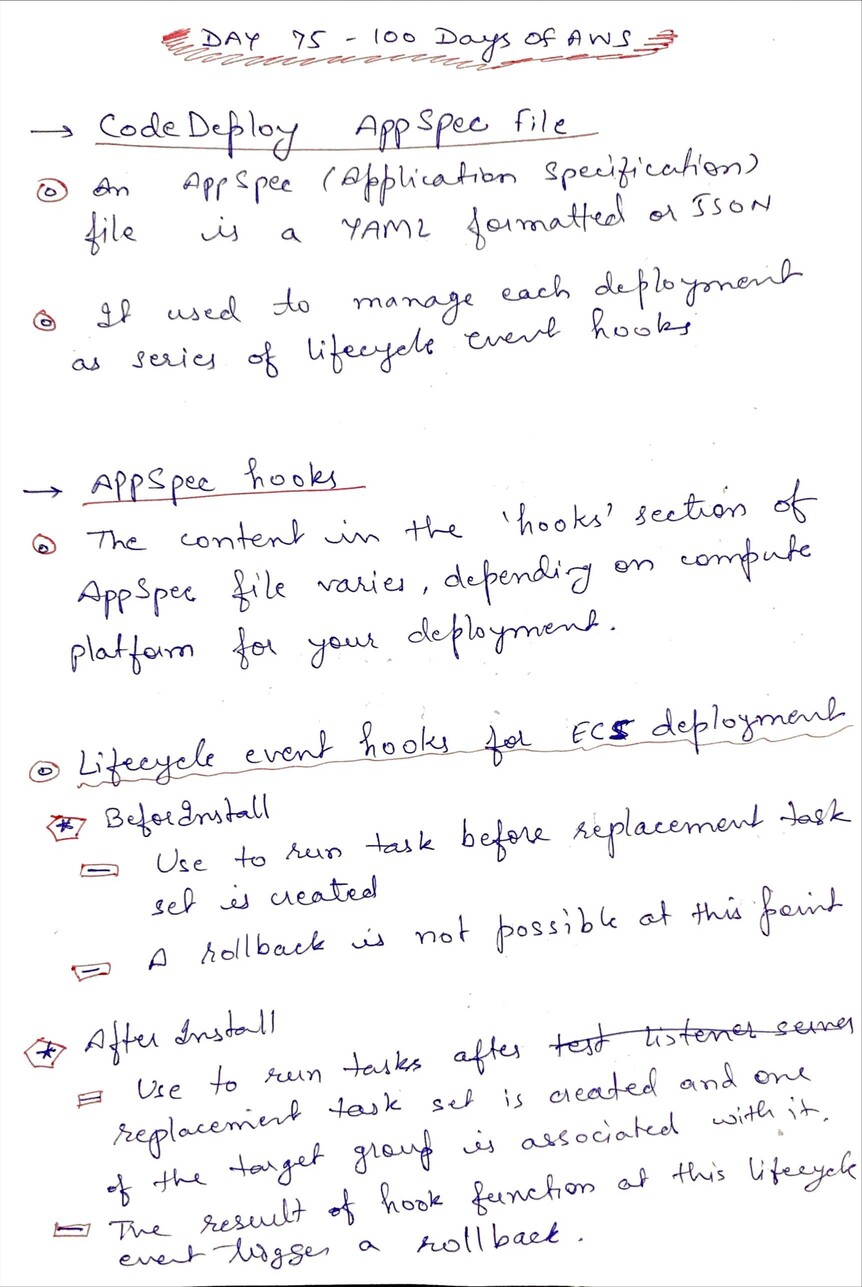 DAY 75 - 100 Days Of AWS
→ CodeDeploy AppSpec file
An AppSpec (Application Specification)
file is a YAML formatted or JSON
It used to manage each deployment
as series of lifecycle event hooks
→ AppSpec hooks
The content in the 'hooks' section of
AppSpec file varies, depending on compute
platform for your deployment.
Lifecycle event hooks for ECS deployment
* BeforeInstall
Use to run task before replacement task
set is created
A rollback is not possible at this point
* After Install
Use to run tasks after test listener serves
replacement task set is created and one
of the target group is associated with it.
The result of hook function at this lifecycle
event trigger a rollback.